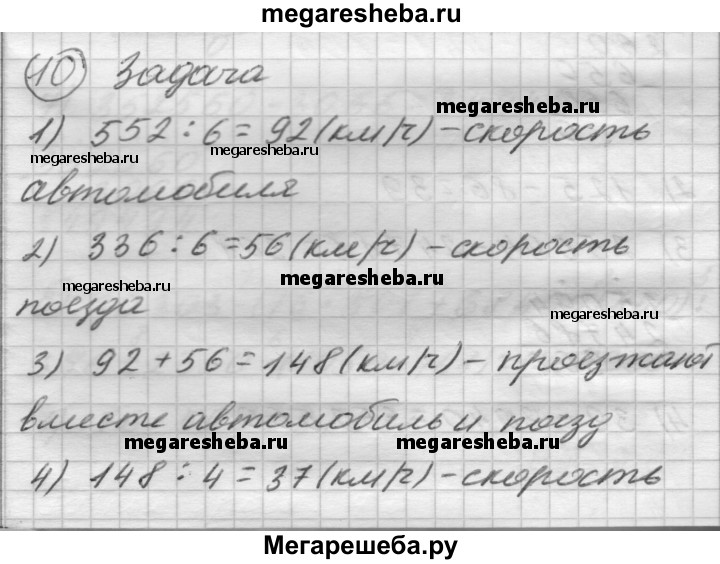 megaresheba.ru
10 Задача
megaresheba.ru
1) 552:6=92(км/ч)-скорость
megaresheba.ru megaresheba.ru
автомобиля
2) 336:6=56(км/ч)-скорость
megaresheba.ru megaresheba.ru
поезда megaresheba.ru
3) 92+56=148(км/ч)- проезжают
вместе автомобиль и поезд
megaresheba.ru megaresheba.ru
4) 148:4=37(км/ч)-скорость
Мегарешеба.ру